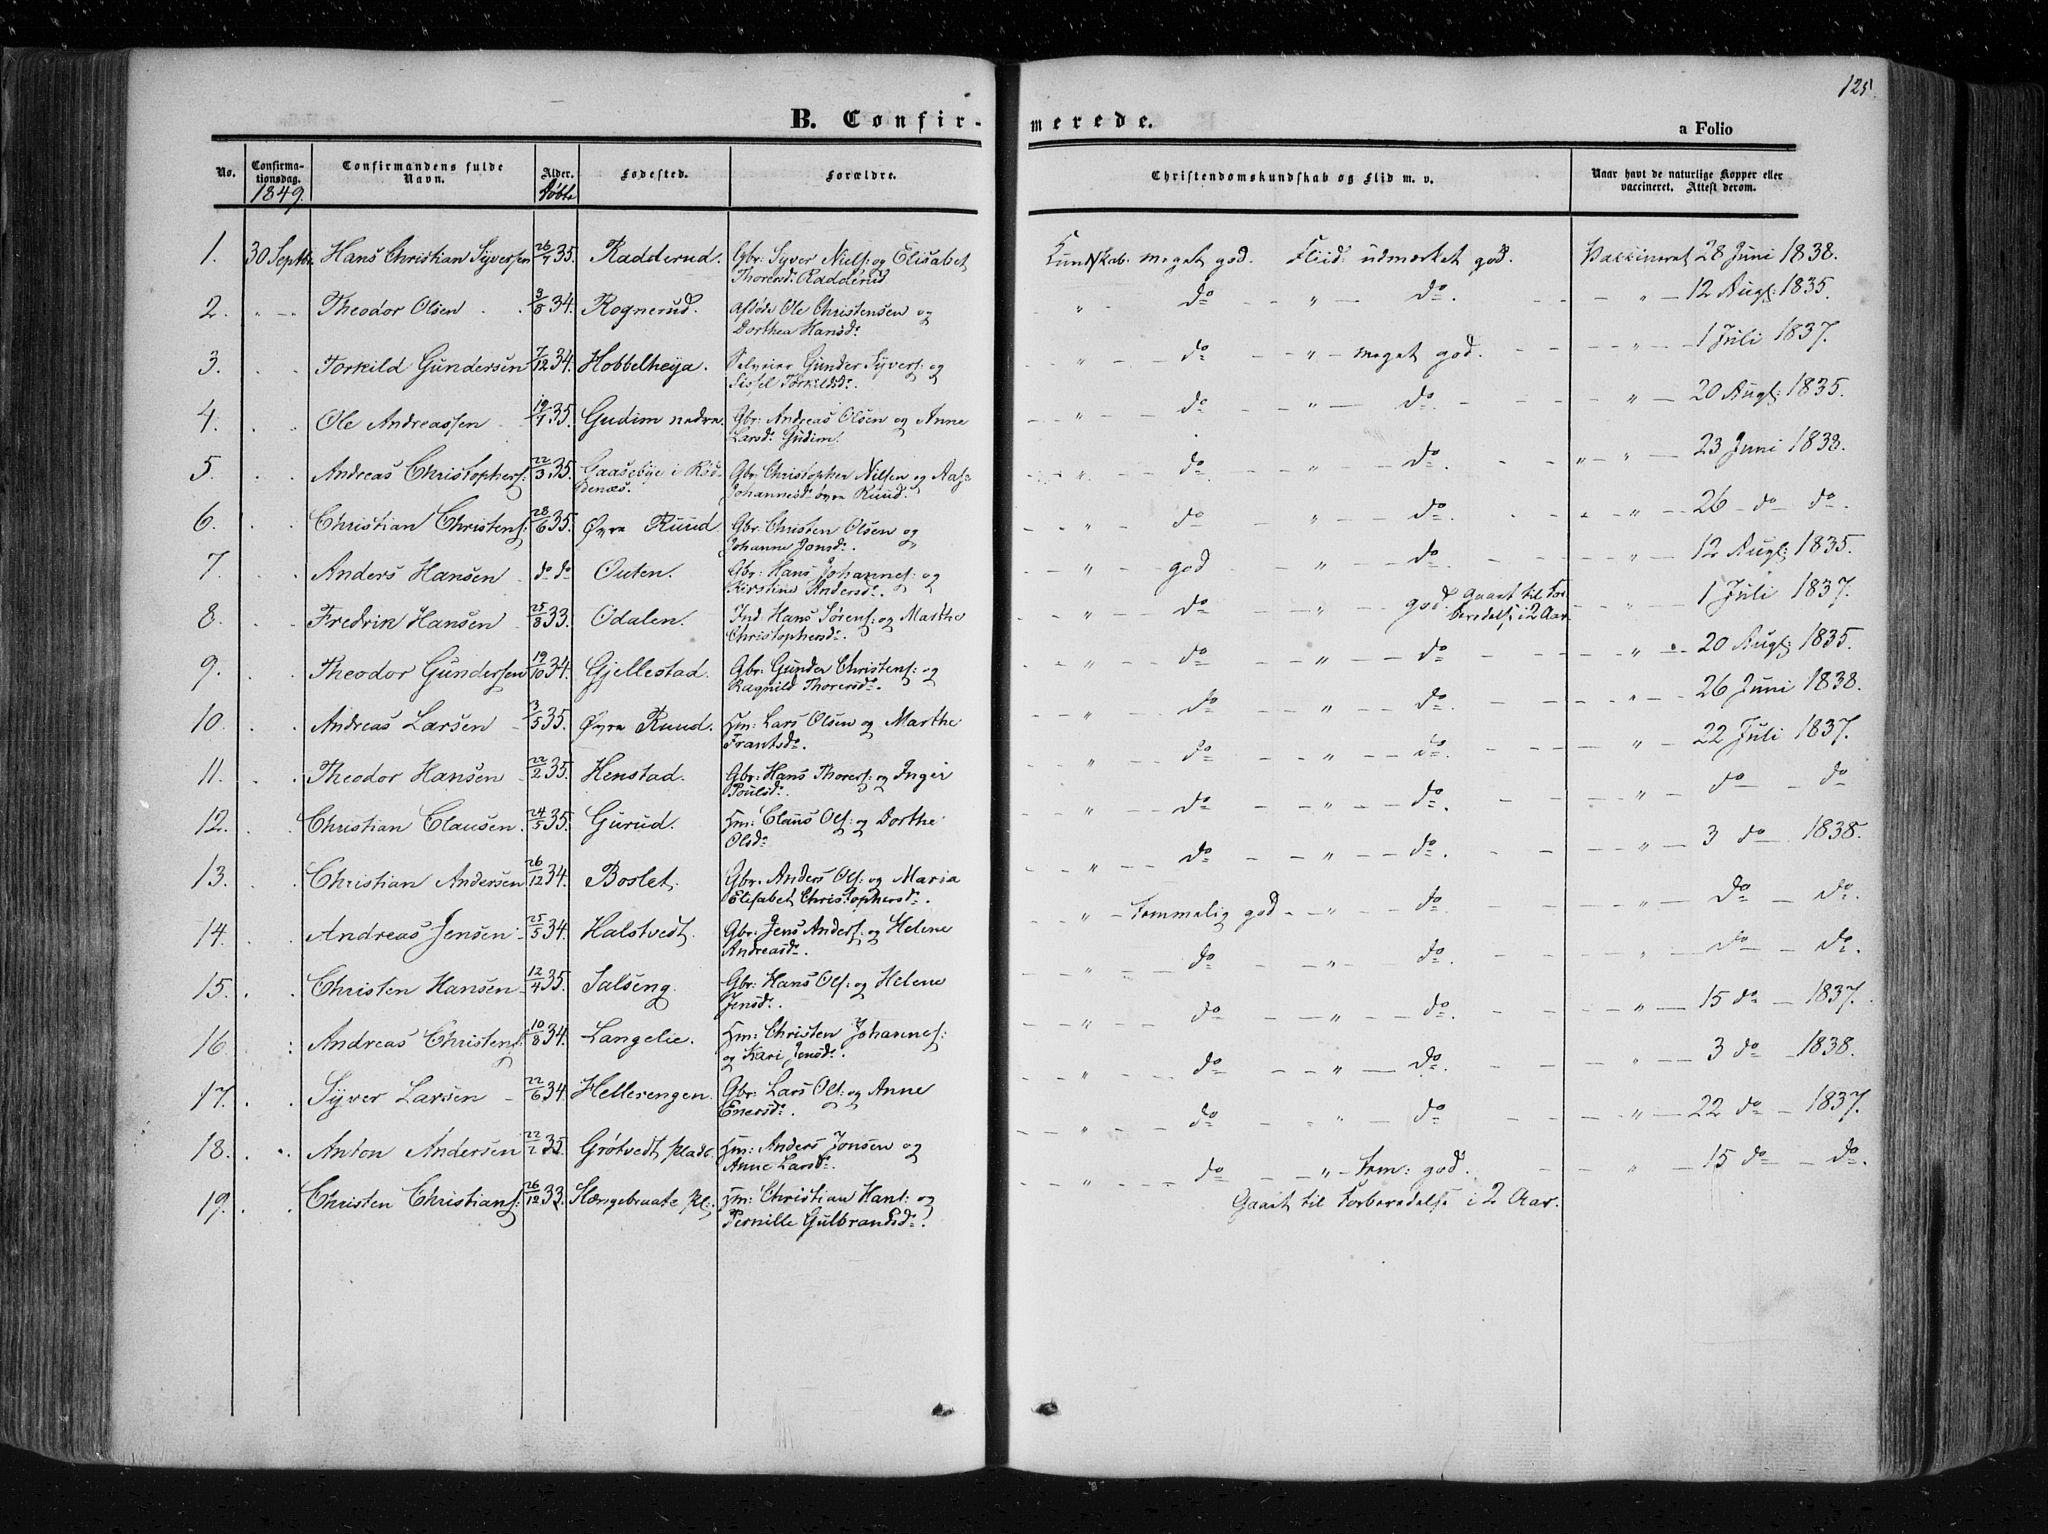 125
B. Confirmerede.
a Folio
No.
Confirmationsdag.
1849.
Confirmandens fulde Navn.
Alder.
Døbte
Fødested.
Forældre.
Christendomskundskab og Flid m. v.
Naar havt de naturlige Kopper eller vaccineret. Attest derom.
1. 30 Septbr. Hans Christian Syversen 26/7 35. Radderud. Gbr: Syver Niels: og Elisabet Kundskab: meget god. Fliid: udmærket god. Vakkineret 28 Juni 1838.
Thoresd: Radderud
2. " Theodor Olsen 3/8 34. Rognerud. Afdøde Ole Christensen og " do " do. " 12 Augs: 1835.
Dorthea Hansdr.
3. " Torkild Gundersen 7/12 34. Hobbelheya. Selveier Gunder Syvers: og " do " meget god. " 1 Juli 1837.
Sissel Torkildsdr.
4. " Ole Andreassen 19/7 35. Gudim nedre. Gbr: Andreas Olsen og Anne " do " do. " 20 Augs: 1835.
Larsdr. Gudim.
5. " Andreas Christophers: 22/3 35. Gaasebye i Rød- Gbr: Christopher Nilsen og Aas: " do " do. " 23 Juni 1838.
denæs. Johannesdr. øvre Ruud.
6. " Christian Christens: 28/6 35. Øvre Ruud Gbr: Christen Olsen og " do " do. " 26 do do.
Johanne Jonsdr.
7. " Anders Hansen do do Outen. Gbr: Hans Johannes: og " god " do " 12 Augs: 1835.
Kirstine Andersdr.
8. " Fredrik Hansen 25/8 33. Odalen. Ind: Hans Sørens: og Marthe " do " god. Gaaet til For- " 1 Juli 1837.
Christophersdr. beredels: i 2 Aar.
9. " Theodor Gundersen 19/10 34. Gjellestad. Gbr: Gunder Christens: og " do " do " 20 Augs: 1835.
Ragnild Thoresdr.
10. " Andreas Larsen 3/5 35. Øvre Ruud. Hm: Lars Olsen og Marthe " do " do " 26 Juni 1838.
Frantsdr.
11. " Theodor Hansen 22/2 35. Henstad. Gbr: Hans Thores: og Inger " do " do. " 22 Juli 1837.
Poulsdr.
12. " Christian Clausen. 24/5 35. Gurud. Hm: Claus Ols: og Dorthe " do " do. " do do
Olsdr.
13. " Christian Andersen 26/12 34. Boslet. Gbr: Anders Ols: og Maria " do " do. " 3 do 1838.
Elisabet Christophersdr.
14. " Andreas Jensen 25/5 34. Halstvedt. Gbr: Jens Anders: og Helene " Temmelig god " do " do do.
Andreasdr.
15. " Christen Hansen 12/4 35. Salseng. Gbr: Hans Ols: og Helene " do " do. " do do.
Jensdr.
16 " Andreas Christens: 10/8 34. Langelie. Hm: Christen Johannes: " do " do. " 15 do 1837.
og Kari Jensdr.
17. " Syver Larsen 22/6 34. Hellerengen. Gbr: Lars Ols: og Anne " do " do. " 3 do 1838.
Enersdr.
18. " Anton Andersen 22/2 35. Grøtvedt plads. Hm: Anders Jonsen og " do " do " 22 do 1837.
Anne Larsdr.
19. " Christen Christians: 26/12 33. Hængebraate pl: Hm: Christian Hans: og " do " Tem: god. " 15 do do.
Pernille Gulbrandsdr. Gaaet til Forberedelse i 2 Aar.